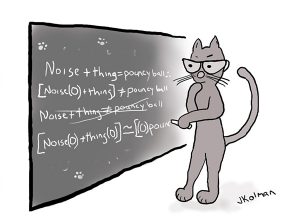 Noise + thing = pouncy ball ∴
[Noise(0) + thing] ≠ pouncy ball
Noise + thing ≠ pouncy ball
[Noise(0) + thing(0)] ≃ [(0)poun
JKolman